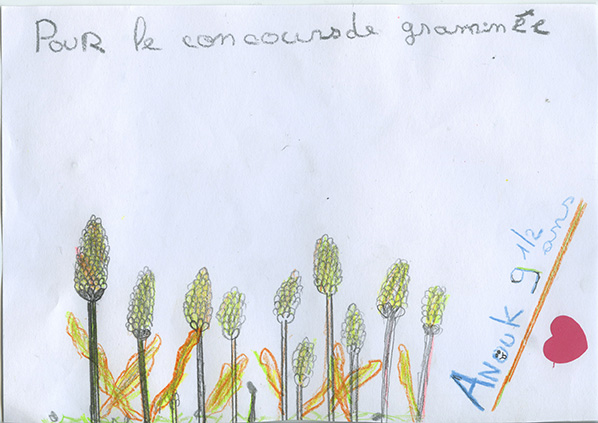 Pour le concours de graminée
Anouk 9 1/2 ans